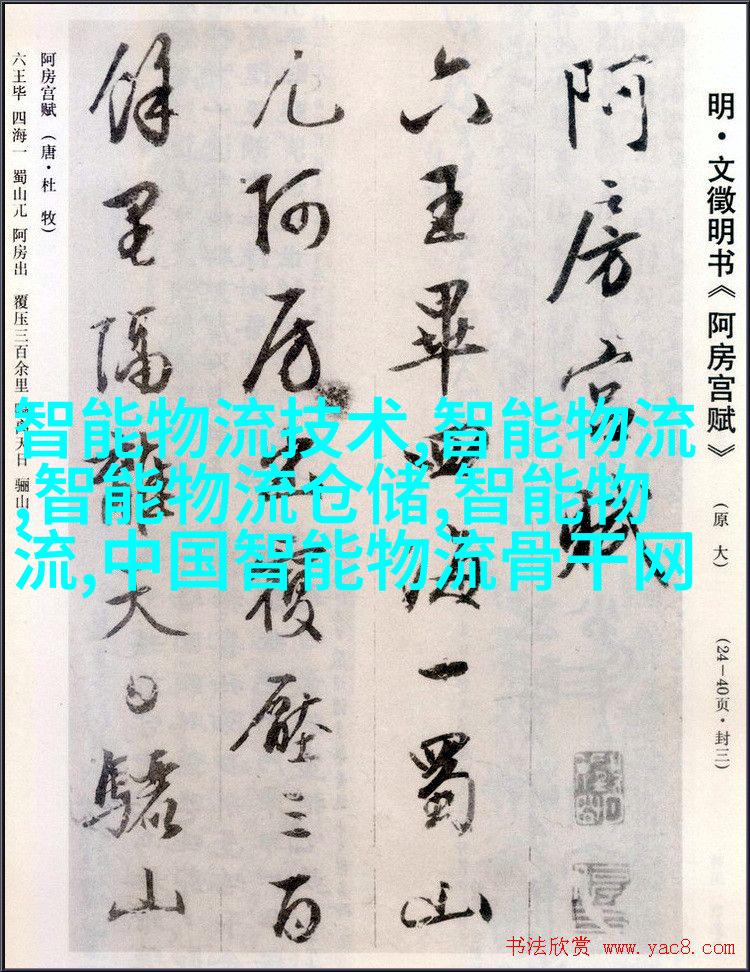 明·文徵明书《阿房宫赋》
(原大)
(24—40页·封三)
阿房宫赋
六王畢四海一蜀山
兀阿房出覆壓三百
餘里隔離天日驪山
阿房宫赋(唐·杜 牧)
六王毕 四海一 蜀山兀 阿房出 覆压三百余里 天日 骊山
智能物流技术,智能物流
,智能物流仓储,智能物
流,中国智能物流骨干网
书法欣赏 www.yac8.com